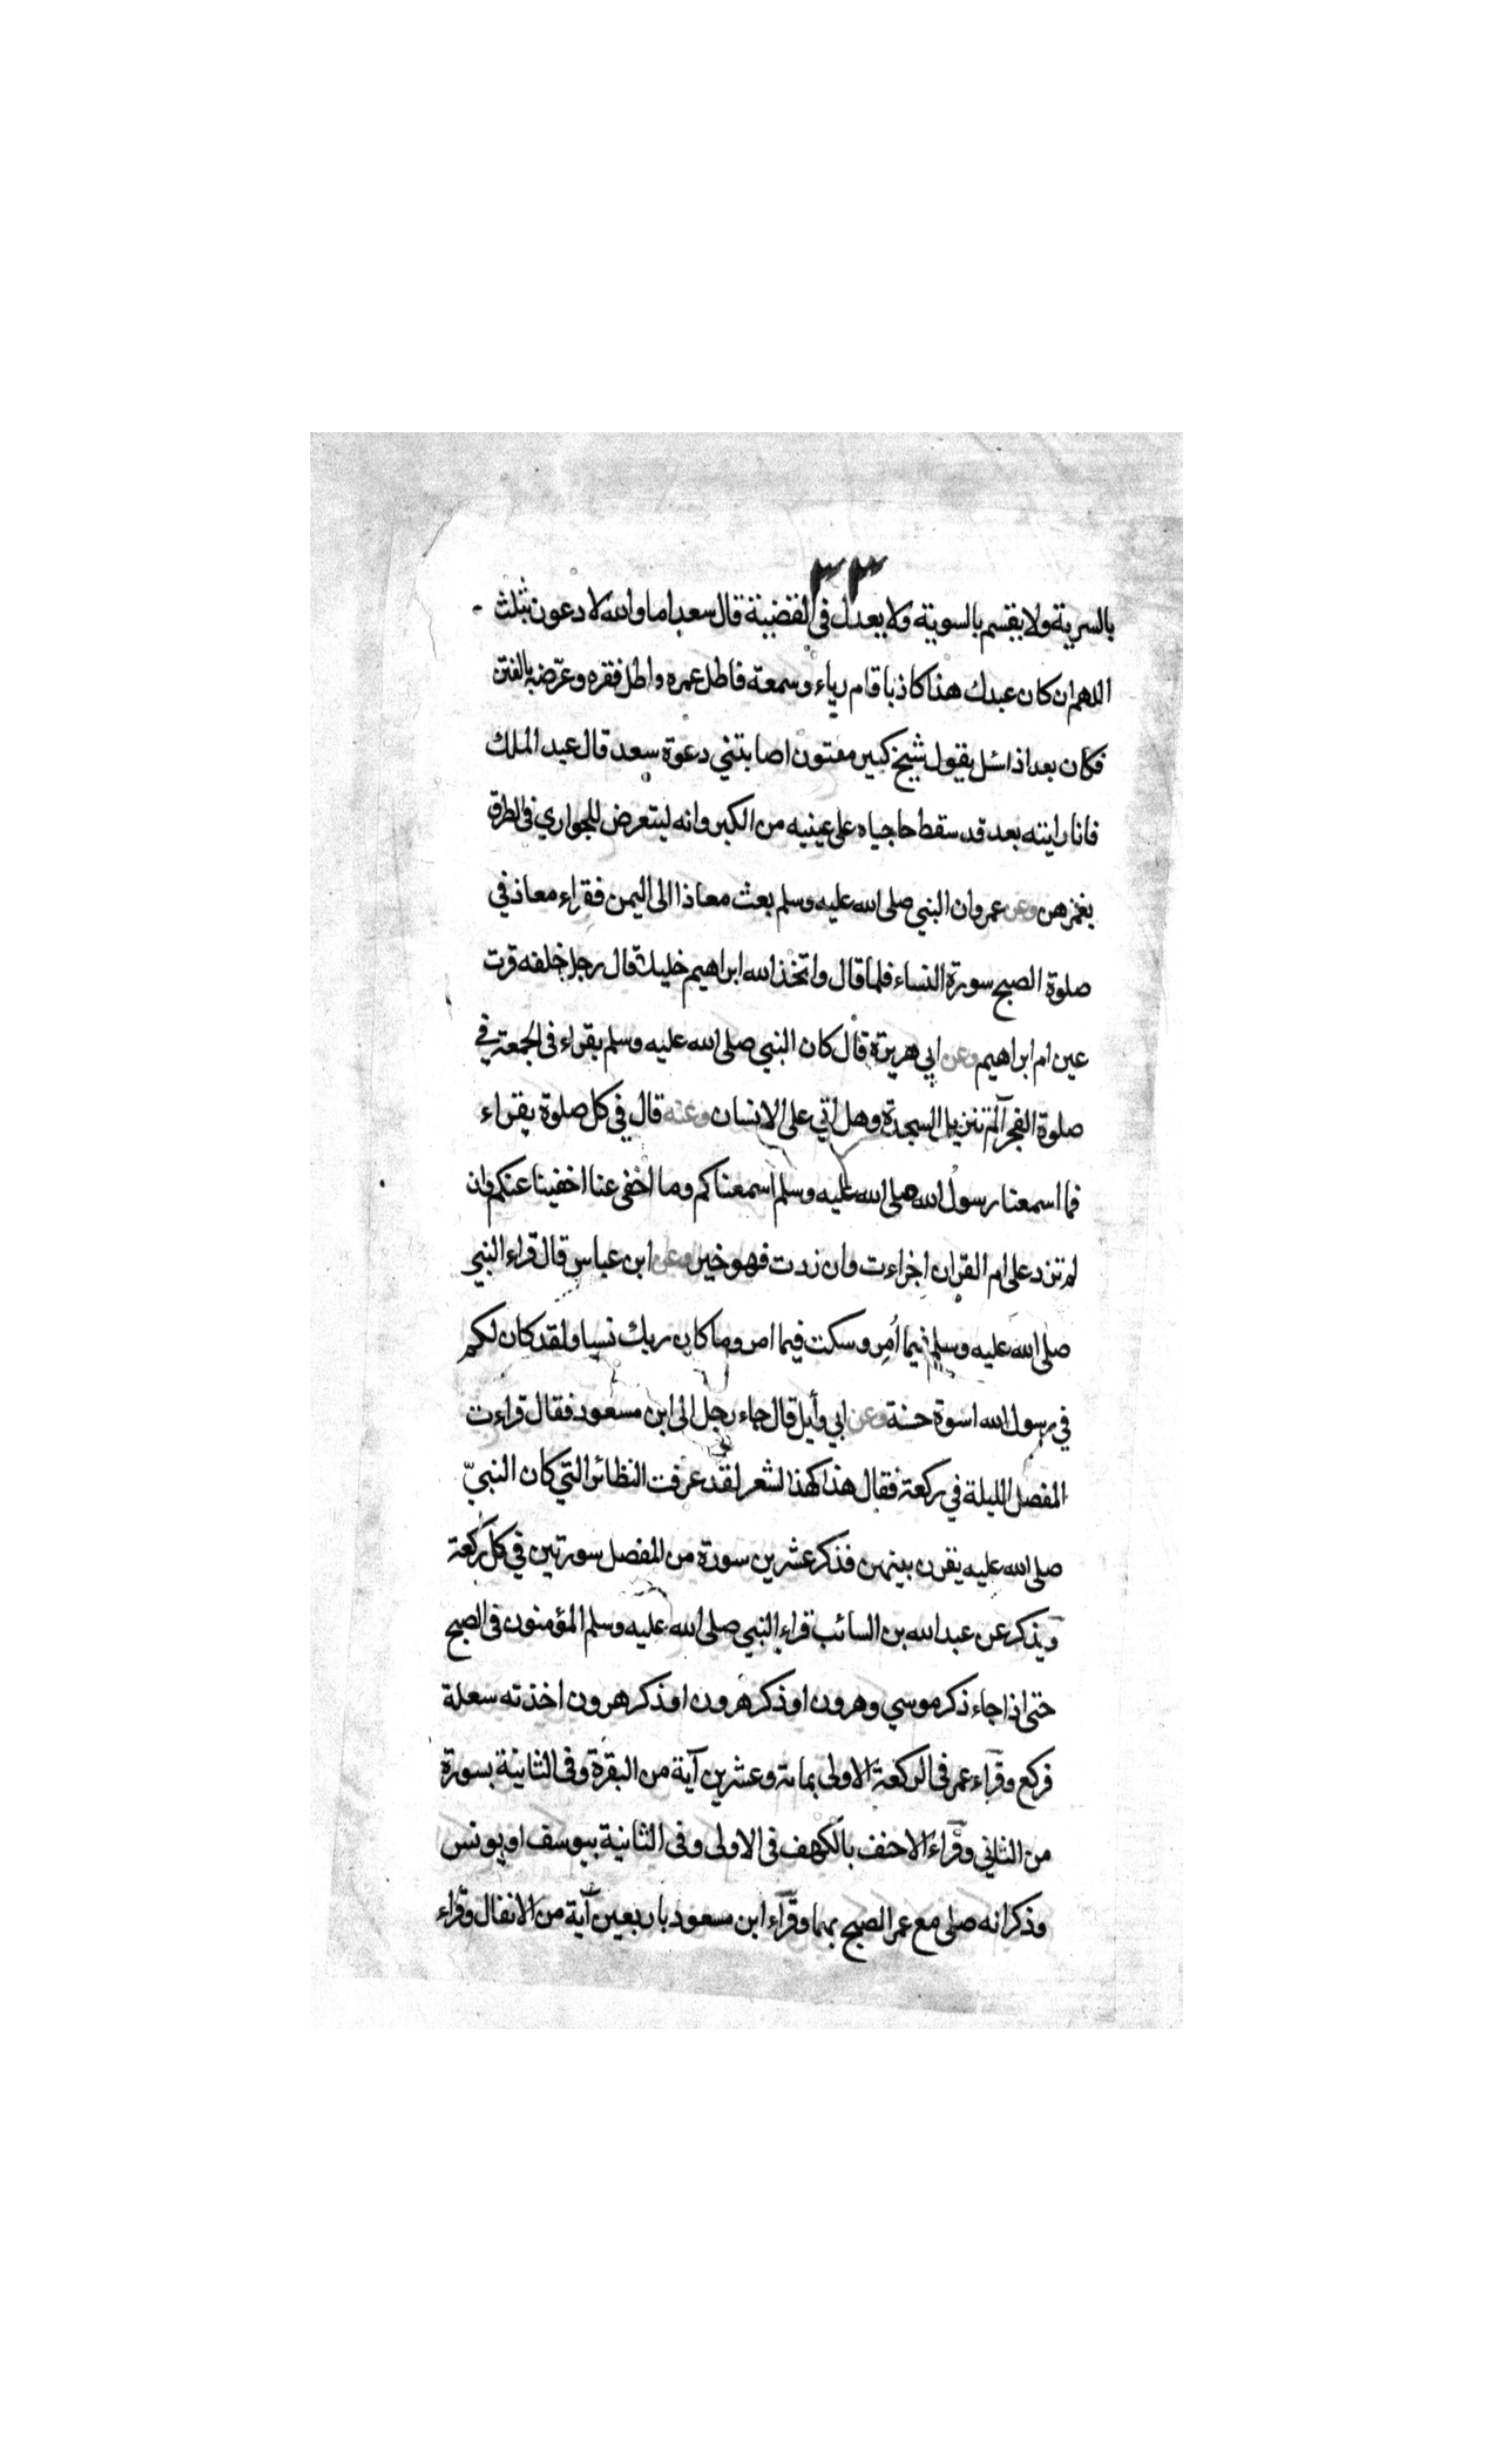 ٣٣
بالسرية ولا يقسم بالسوية ولا يعدل في القضية قال سعد اما والله لا دعون بثلث
اللهم ان كان عبدك هذا كاذبا قام رياء وسمعة فاطل عمره واطل فقره وعرضه بالفتن
فكان بعد اذا سئل يقول شيخ كبير مفتون اصابتني دعوة سعد قال عبد الملك
فانا رايته بعد قد سقط حاجباه على عينيه من الكبر وانه ليتعرض للجواري في الطرق
يغمزهن وعن عمرو ان النبي صلى الله عليه وسلم بعث معاذا الى اليمن فقراء معاذ في
صلوة الصبح سورة النساء فلما قال واتخذ الله ابراهيم خليلا قال رجل خلفه قرت
عين ام ابراهيم وعن ابي هريرة قال كان النبي صلى الله عليه وسلم يقراء في الجمعة في
صلوة الفجر آلم تنزيل السجدة وهل اتي على الانسان وعنه قال في كل صلوة يقراء
فما اسمعنا رسول الله صلى الله عليه وسلم اسمعناكم وما اخفي عنا اخفينا عنكم وان
لم تزد على ام القران اجزاءت وان زدت فهو خير وعن ابن عباس قال قراء النبي
صلى الله عليه وسلم فيما اُمِر وسكت فيما امر وما كان ربك نسيا ولقد كان لكم
في رسول الله اسوة حسنة وعن ابي وأيل قال جاء رجل الى ابن مسعود فقال قراءت
المفصل الليلة في ركعة فقال هذا كهذ الشعر لقد عرفت النظائر التي كان النبيّ
صلى الله عليه يقرن بينهن فذكر عشرين سورة من المفصل سورتين في كل ركعة
ويذكر عن عبد الله بن السائب قراء النبي صلى الله عليه وسلم المؤمنون في الصبح
حتى اذا جاء ذكر موسي وهرون او ذكر هرون او ذكر هرون اخذته سعلة
فركع وقراء عمر في الركعة الاولى بمائة وعشرين آية من البقرة وفى الثانية بسورة
من الثاني وقراء الاحنف بالكهف فى الاولى وفى الثانية بيوسف او يونس
وذكر انه صلى مع عمر الصبح بهما وقراء ابن مسعود باربعين آية من الانفال وقراء